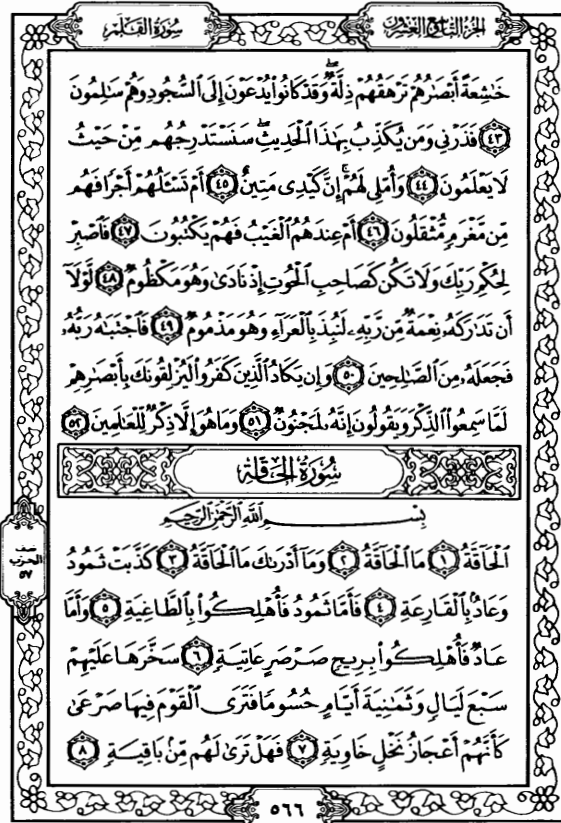 الجزء التاسع والعشرون
سورة القلم
خَٰشِعَةً أَبْصَٰرُهُمْ تَرْهَقُهُمْ ذِلَّةٌ ۖ وَقَدْ كَانُوا۟ يُدْعَوْنَ إِلَى ٱلسُّجُودِ وَهُمْ سَٰلِمُونَ
٤٣ فَذَرْنِى وَمَن يُكَذِّبُ بِهَٰذَا ٱلْحَدِيثِ ۖ سَنَسْتَدْرِجُهُم مِّنْ حَيْثُ
لَا يَعْلَمُونَ ٤٤ وَأُمْلِى لَهُمْ ۚ إِنَّ كَيْدِى مَتِينٌ ٤٥ أَمْ تَسْـَٔلُهُمْ أَجْرًا فَهُم
مِّن مَّغْرَمٍ مُّثْقَلُونَ ٤٦ أَمْ عِندَهُمُ ٱلْغَيْبُ فَهُمْ يَكْتُبُونَ ٤٧ فَٱصْبِرْ
لِحُكْمِ رَبِّكَ وَلَا تَكُن كَصَاحِبِ ٱلْحُوتِ إِذْ نَادَىٰ وَهُوَ مَكْظُومٌ ٤٨ لَّوْلَآ
أَن تَدَٰرَكَهُۥ نِعْمَةٌ مِّن رَّبِّهِۦ لَنُبِذَ بِٱلْعَرَآءِ وَهُوَ مَذْمُومٌ ٤٩ فَٱجْتَبَٰهُ رَبُّهُۥ
فَجَعَلَهُۥ مِنَ ٱلصَّٰلِحِينَ ٥٠ وَإِن يَكَادُ ٱلَّذِينَ كَفَرُوا۟ لَيُزْلِقُونَكَ بِأَبْصَٰرِهِمْ
لَمَّا سَمِعُوا۟ ٱلذِّكْرَ وَيَقُولُونَ إِنَّهُۥ لَمَجْنُونٌ ٥١ وَمَا هُوَ إِلَّا ذِكْرٌ لِّلْعَٰلَمِينَ ٥٢
سُورَةُ الحَاقَّة
بِسْمِ ٱللَّهِ ٱلرَّحْمَٰنِ ٱلرَّحِيمِ
نصف
الحزب
٥٧
ٱلْحَآقَّةُ ١ مَا ٱلْحَآقَّةُ ٢ وَمَآ أَدْرَىٰكَ مَا ٱلْحَآقَّةُ ٣ كَذَّبَتْ ثَمُودُ
وَعَادٌۢ بِٱلْقَارِعَةِ ٤ فَأَمَّا ثَمُودُ فَأُهْلِكُوا۟ بِٱلطَّاغِيَةِ ٥ وَأَمَّا
عَادٌ فَأُهْلِكُوا۟ بِرِيحٍ صَرْصَرٍ عَاتِيَةٍ ٦ سَخَّرَهَا عَلَيْهِمْ
سَبْعَ لَيَالٍ وَثَمَٰنِيَةَ أَيَّامٍ حُسُومًا فَتَرَى ٱلْقَوْمَ فِيهَا صَرْعَىٰ
كَأَنَّهُمْ أَعْجَازُ نَخْلٍ خَاوِيَةٍ ٧ فَهَلْ تَرَىٰ لَهُم مِّنۢ بَاقِيَةٍ ٨
٥٦٦